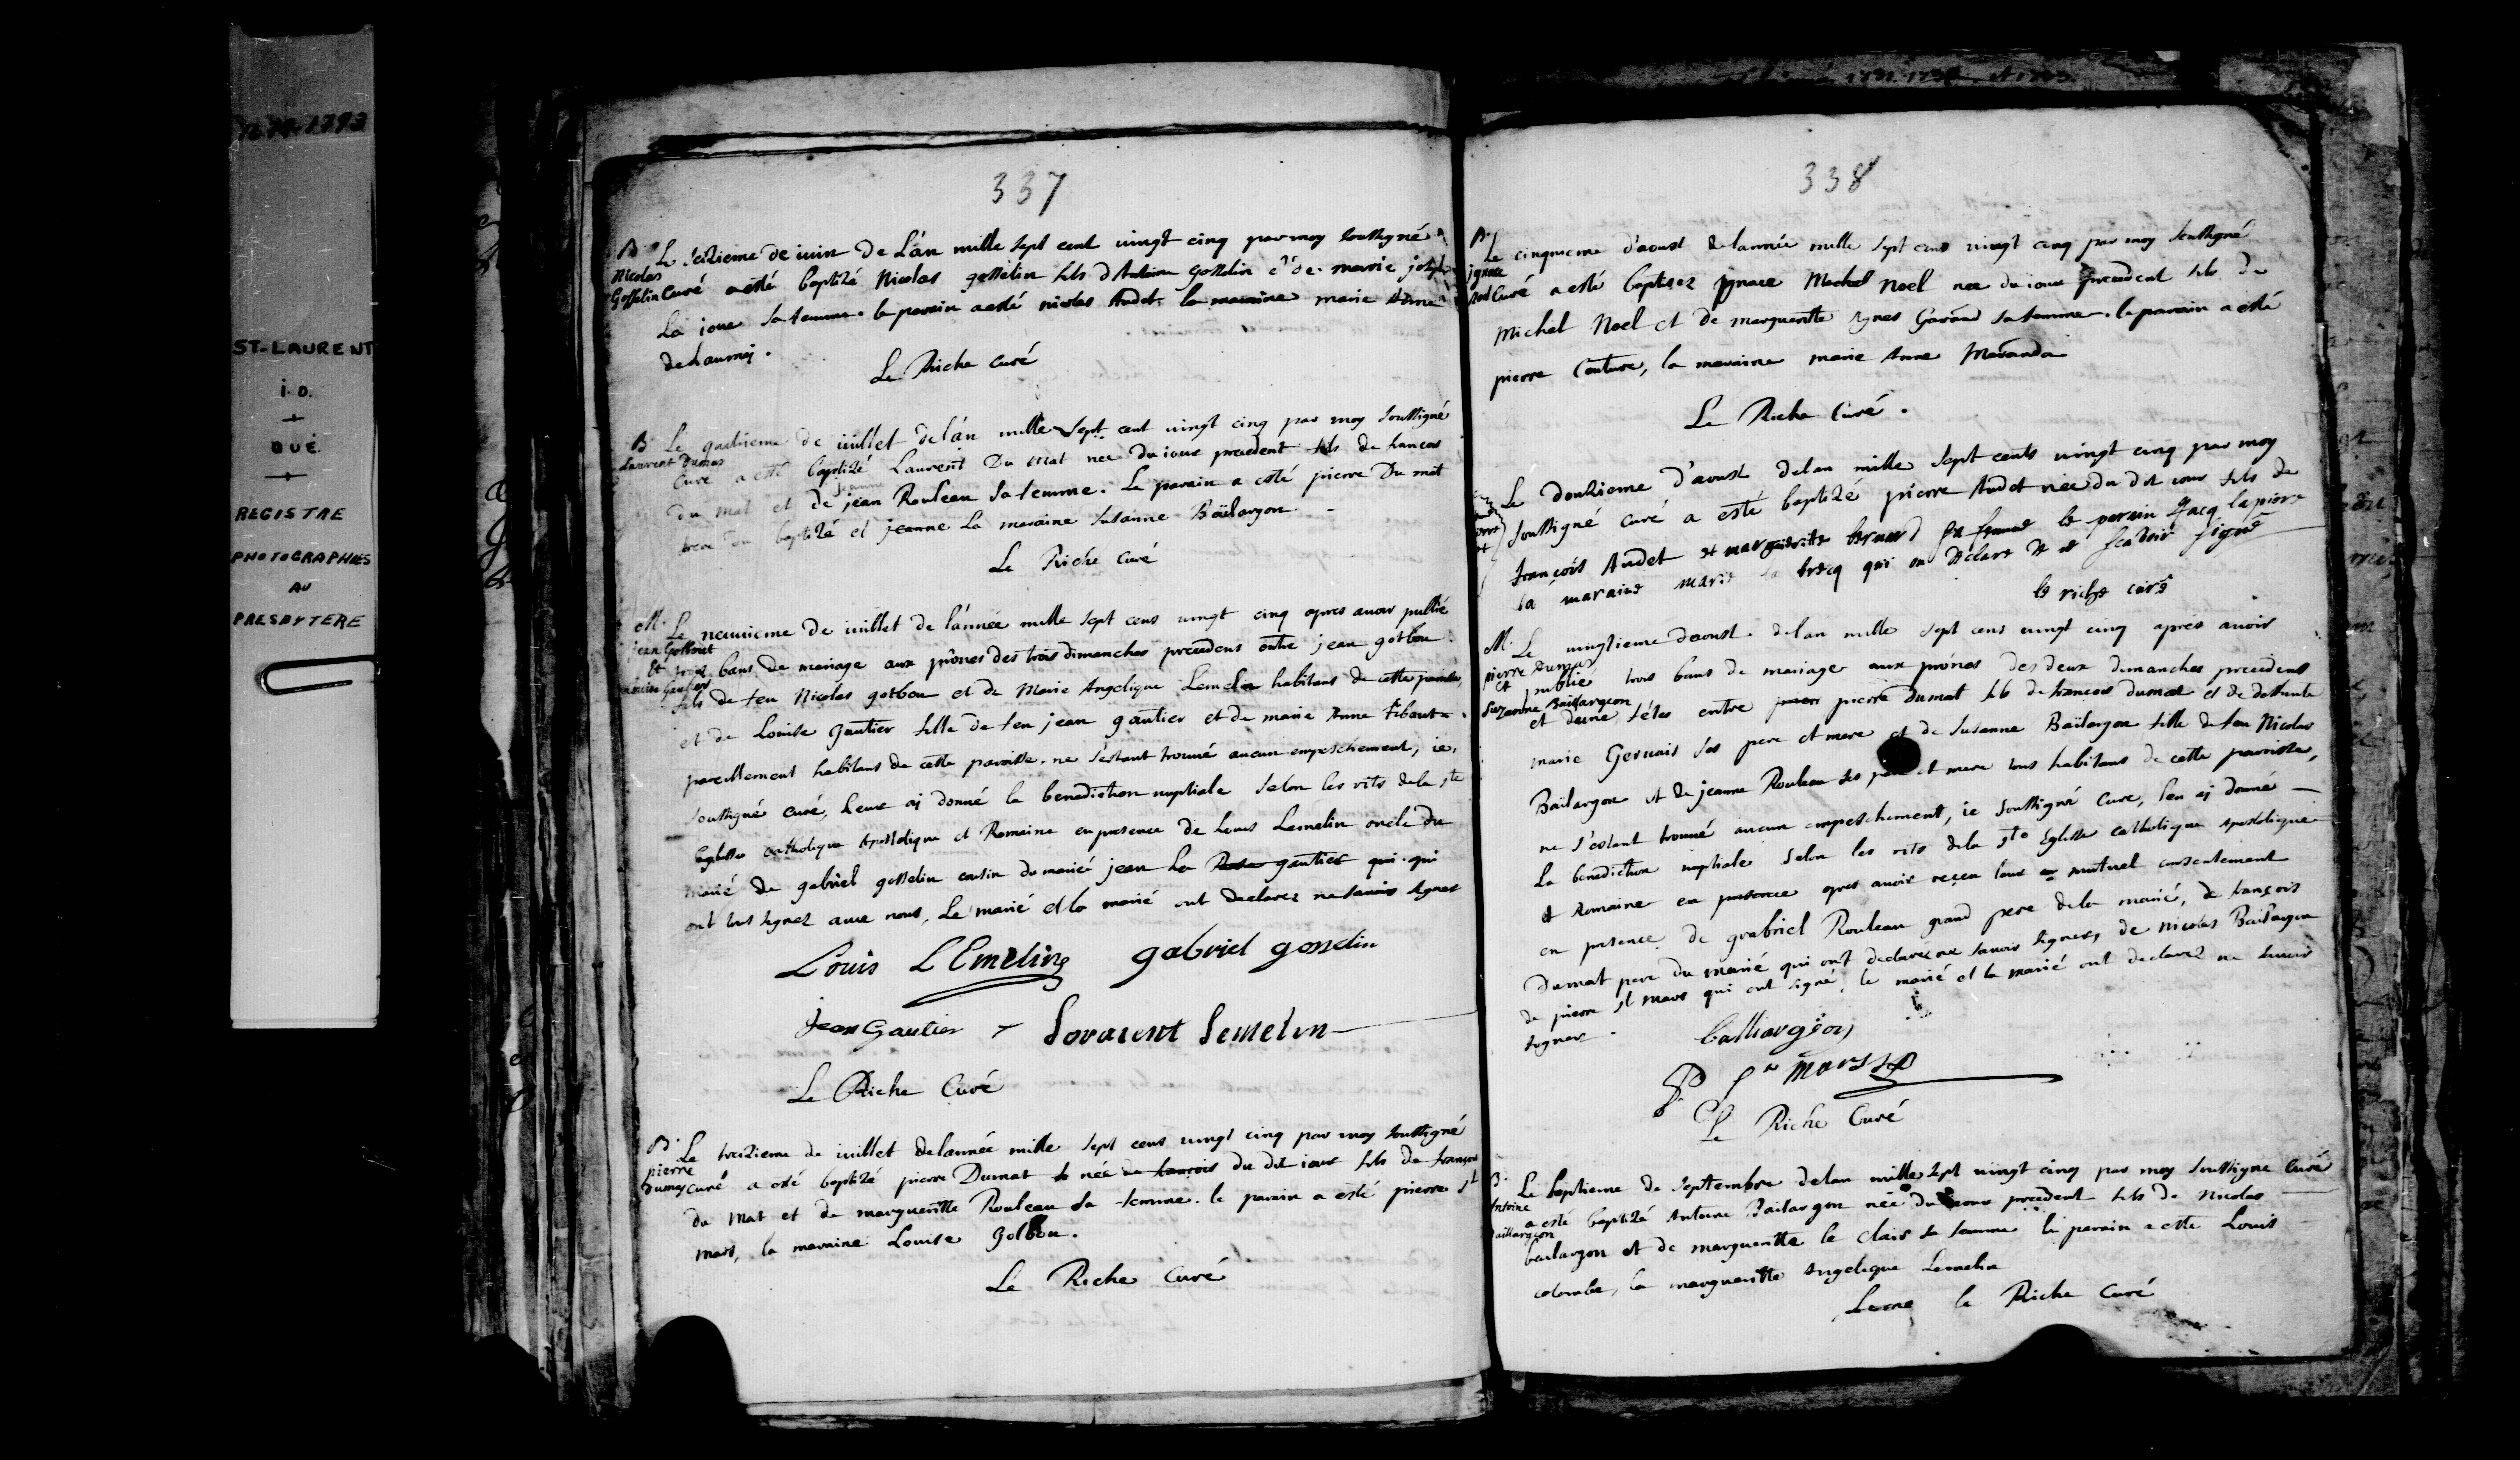 1679-1793
ST-LAURENT
i.o.
QUÉ.
REGISTRE
PHOTOGRAPHIÉS
AU
PRESBYTERE
337
B. Le seizieme de iuin de L'an mille sept cent vingt cinq par moy soussigné
Nicolas
Gosselin
curé a esté baptizé Nicolas gosselin fils d'Antoine Gosselin et de marie joseph
La joue sa femme. le parein a esté nicolas Audet, la maraine marie Anne
delaunay.
Le Riche curé
B. Le quatrieme de iuillet de l'an mille sept cent vingt cinq par moy soussigné
Laurent Dumas
Curé a esté baptizé Laurent Du Mat née du iour precedent fils de francois
du mat et de jean Rouleau sa femme. Le parain a esté pierre Du mat
jeanne
frere du baptizé et jeanne La maraine Susanne Baïlargon.
Le Riché Curé
M. Le neuuieme de iuillet de l'année mille sept cens vingt cinq apres auoir publié
jean Gosbout
Et
Louise Gautier
trois bans de mariage aux prônes des trois dimanches precedens entre jean gotbou
fils de feu Nicolas gotbou et de Marie Angelique Lemelin habitans de cette paroisse,
et de Louise Gautier fille de feu jean gautier et de marie Anne tibaut
pareillement habitans de cette paroisse. ne s'estant trouué aucun empeschement, ie,
soussigné curé, leur aj donné la benediction nuptiale selon les rits de la ste
Eglise catholique Apostolique et Romaine en presence de Louis Lemelin oncle du
marié de gabriel gosselin cousin du marié jean La Rose gautier qui qui
ont tous signez auec nous, Le marié et la marié ont declarez ne sauoir signer
Louis LEmeling gabriel gosselin
jean Gautier Lovarent Lemelin
Le Riche Curé
B. Le treizieme de iuillet de l'année mille sept cens vingt cinq par moy soussigné
pierre
Dumas
curé a esté baptizé pierre Dumat née de francois du dit iour fils de francois
du Mat et de margueritte Rouleau sa femme. le parain a esté pierre st
mars, la maraine Louise Golbou.
Le Riche Curé
338
B. Le cinquieme d'aoust de l'année mille sept cens vingt cinq par moy soussigné
jgnace
Noel
Curé a esté baptisez Jgnace Michel Noel née du iour precedent fils de
Michel Noel et de margueritte Agnes Garand sa femme. le parain a esté
pierre Couture, la maraine marie Anne Maranda
Le Riche Curé.
Le douzieme d'aoust de l'an mille sept cents vingt cinq par moy
soussigné curé a esté baptizé pierre Audet née du dit iour fils de
françois Audet et margueritte bernard sa femme le perain Jacq lapierre
la maraine marie la brecq qui on declare ne scavoir signé
le riche curé
M. Le vingtieme d'aoust de l'an mille sept cens vingt cinq aprés auoir
pierre Dumas
et
Suzanne Baillargeon
publié trois bans de mariage aux prónes des deux dimanches precedens
et d'une fétes entre pierre Dumat fils de francois dumat et de deffunte
marie Geruais ses pere et mere et de Susanne Baïlargon fille de feu Nicolas
Baïlargon et de jeanne Rouleau ses pere et mere tous habitans de cette parroisse,
ne s'estant trouué aucun empeschement, ie soussigné Curé, leu aj donné
La benediction nuptiale selon les rits de la Ste Eglisse catholique Apostolique
et Romaine en presence apres auoir reçeu leur mutuel consentement
en presence de grabriel Rouleau grand pere de la marié, de françois
Dumat pere du marié qui ont declarée ne sauoir signer, de nicolas Bailargon
de pierre st mars qui ont signé, le marié et la marié ont declarez ne sauoir
signer.
balliargeon
P st mars
Le Riché Curé
B. Le septieme de septembre de l'an mille sept vingt cinq par moy soussigne Curé
Antoine
Baillargeon
a esté baptizé Antoine Bailargon née du iour precedent fils de Nicolas
bailargon et de margueritte le clair sa femme le parain a este Louis
colombe, la margueritte Angelique Lemelin
le Riche Curé